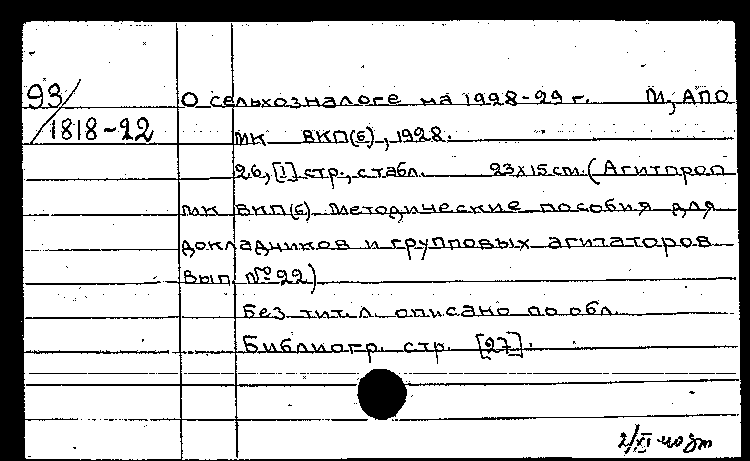 93/
/1818-22
О сельхозналоге на 1928-29 г. М, АПО
МК ВКП(б), 1928.
26, [1] стр., с табл. 23х15 cm. (Агитпроп
МК ВКП(б). Методические пособия для
докладчиков и групповых агитаторов
Вып. № 22)
Без тит. л. описано по обл.
Библиогр. стр. [27].
2/XI